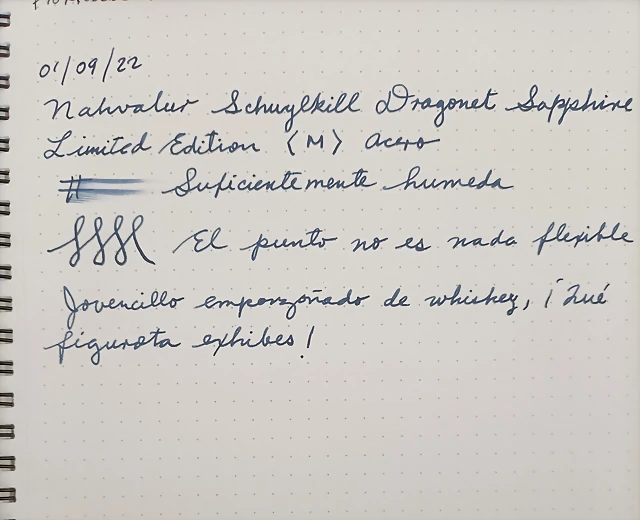 01/09/22
Nahvalur Schuylkill Dragonet Sapphire
Limited Edition <M> Acero
Suficientemente humeda
El punto no es nada flexible
Jovencillo emponzoñado de whiskey, ¡Qué
figurota exhibes!